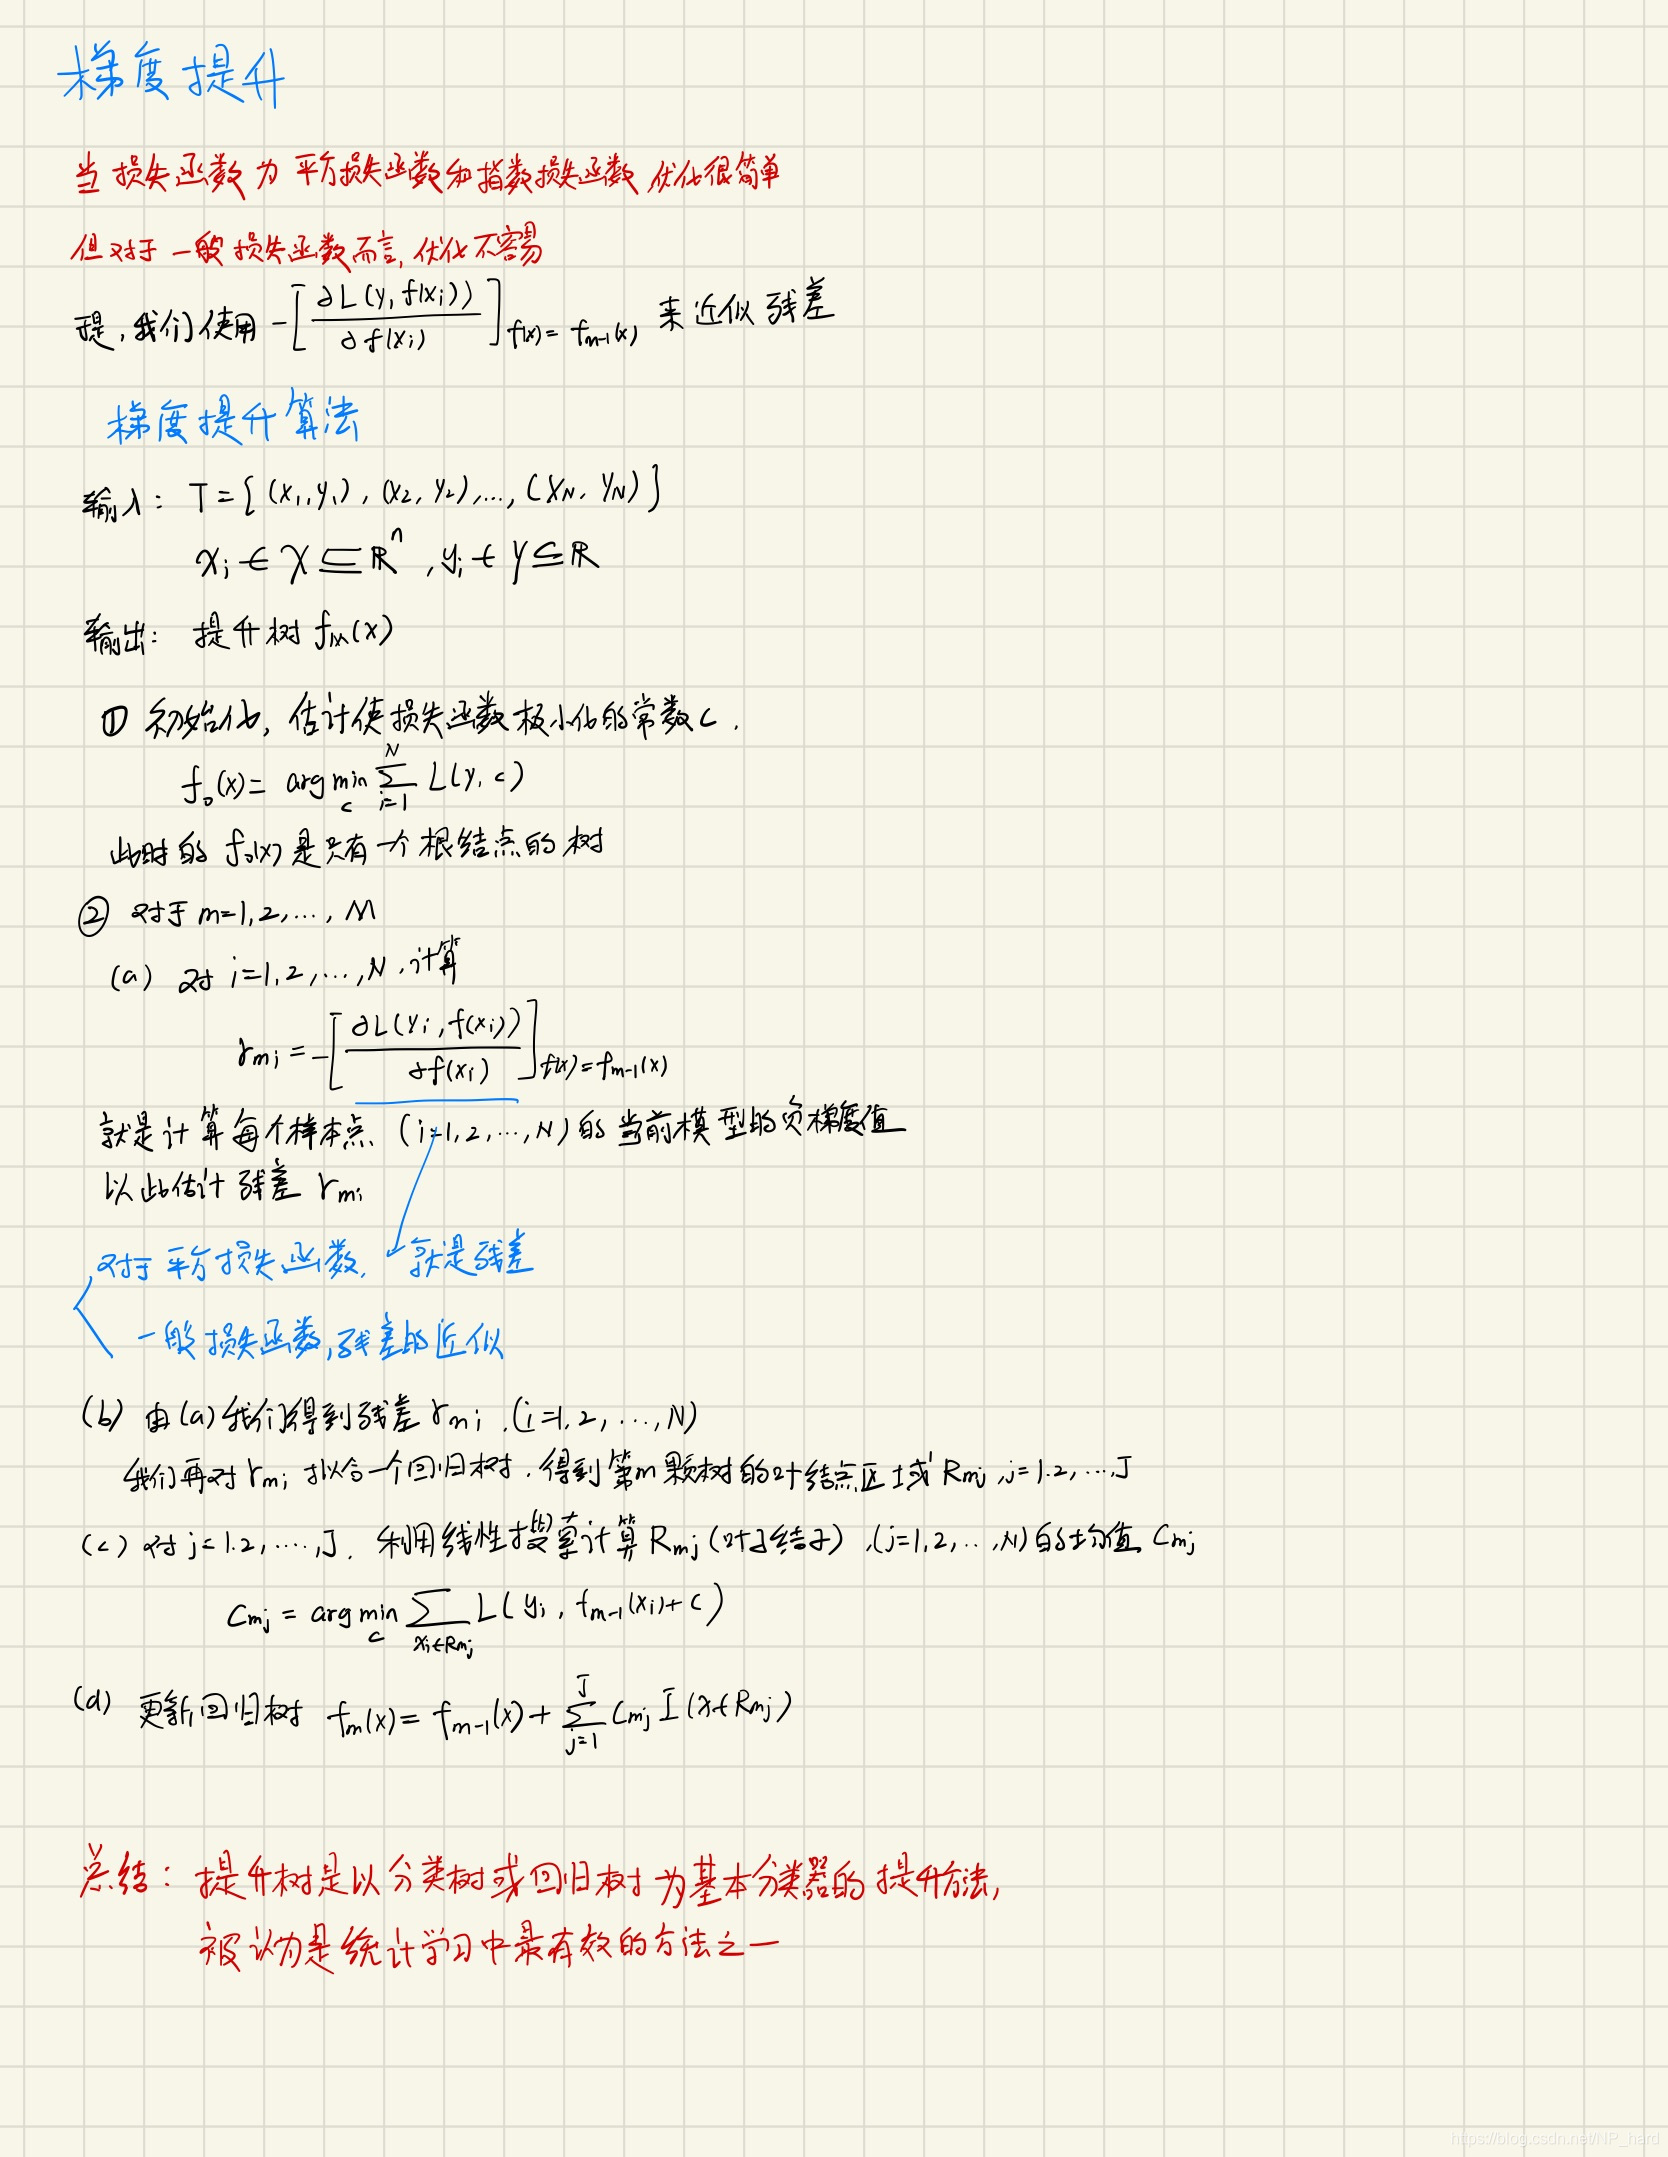 梯度提升
当损失函数为平方损失函数和指数损失函数优化很简单
但对于一般损失函数而言,优化不容易
,我们使用 -[∂L(y, f(xi)) / ∂f(xi)] f(x) = fm-1(x) 来近似残差
梯度提升算法
输入: T = {(x1, y1), (x2, y2), ..., (xN, yN)}
xi ∈ χ ⊆ R^n, yi ∈ y ⊆ R
输出: 提升树 fM(x)
① 初始化, 估计使损失函数极小化的常数c.
f0(x) = arg min_c Σ_{i=1}^{N} L(y, c)
此时的 f0(x) 是只有一个根结点的树
② 对于 m=1,2,...,M
(a) 对 i=1,2,...,N,计算
rmi = -[∂L(yi, f(xi)) / ∂f(xi)] f(x) = fm-1(x)
就是计算每个样本点 (i=1,2,...,N) 的当前模型的负梯度值
以此估计残差 rmi
对于平方损失函数, 就是残差
一般损失函数,残差的近似
(b) 由(a)我们得到残差 rmi,(i=1,2,...,N)
我们再对 rmi 拟合一个回归树,得到第m颗树的叶结点区域 Rmj, j=1,2,...,J
(c) 对 j=1,2,...,J, 利用线性搜索计算 Rmj (叶子结子),(j=1,2,...,N) 的均值 Cmj
Cmj = arg min_c Σ_{xi∈Rmj} L(yi, fm-1(xi) + c)
(d) 更新回归树 fm(x) = fm-1(x) + Σ_{j=1}^{J} Cmj I(x∈Rmj)
总结: 提升树是以分类树或回归树为基本分类器的提升方法,
被认为是统计学习中最有效的方法之一
https://blog.csdn.net/NP_hard